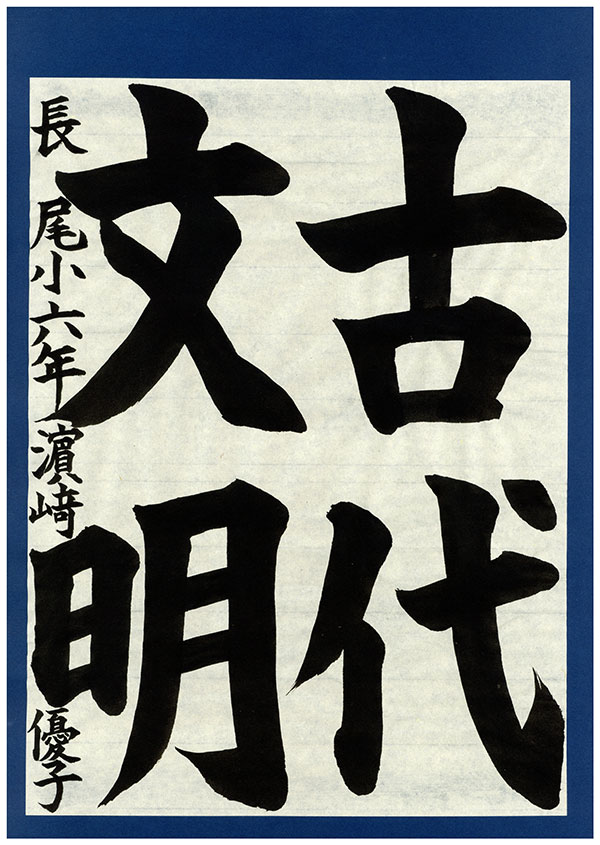 古代
文明
長尾小六年濵﨑優子